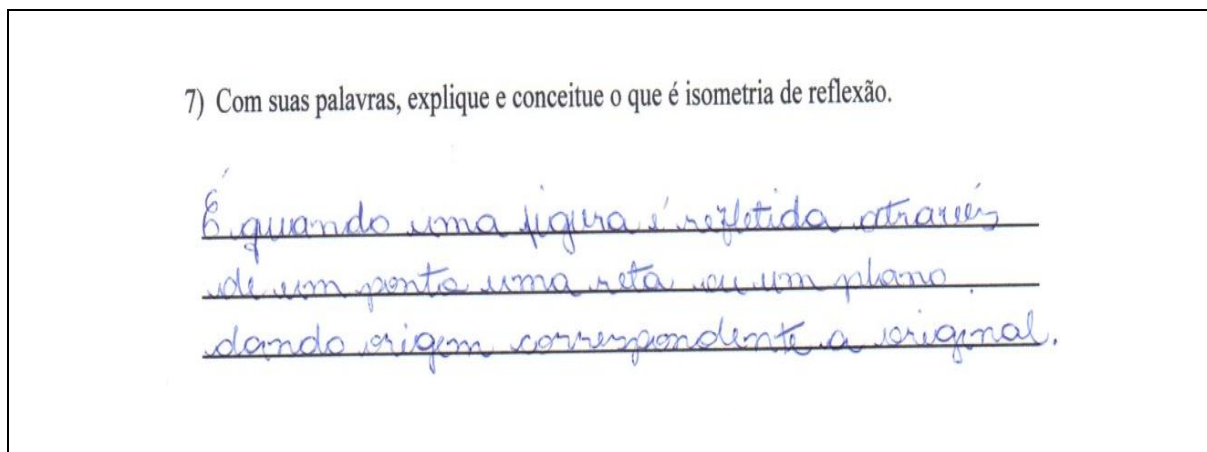 7) Com suas palavras, explique e conceitue o que é isometria de reflexão.
É quando uma figura é refletida através
de um ponto uma reta ou um plano
dando origem correspondente a original.